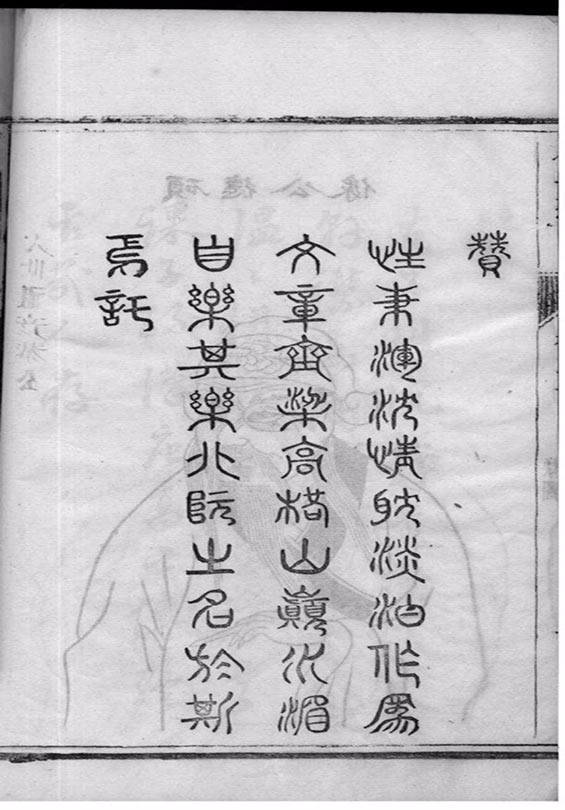 贊
性秉渾沈情耽淡泊作爲
文章齊梁高格山巔水湄
自樂其樂北阮之名於斯
焉託